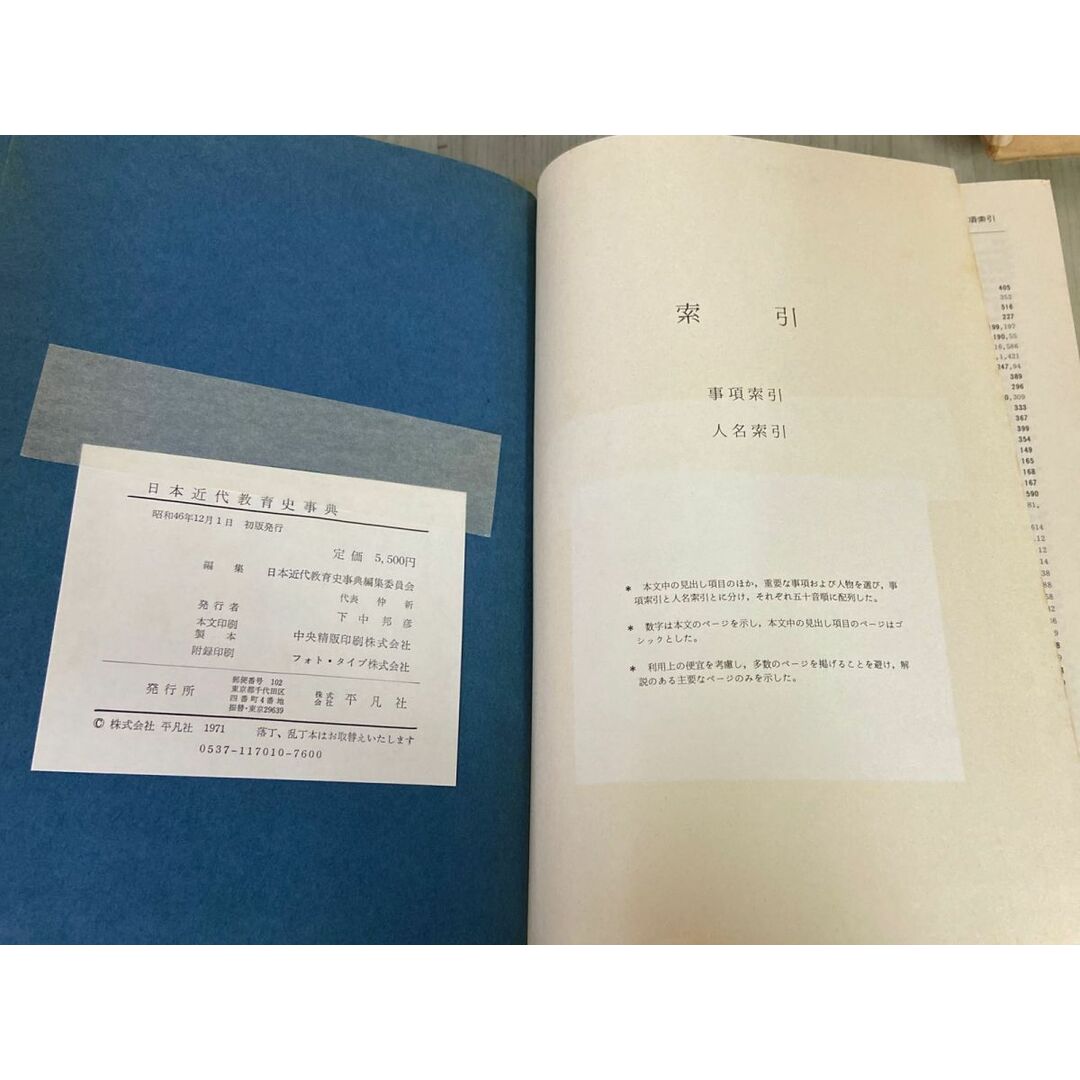 日本近代教育史事典
昭和46年12月1日 初版発行
定価 5,500円
編集 日本近代教育史事典編集委員会
代表 仲新
発行者 下中邦彦
本文印刷
製本 中央精版印刷株式会社
附録印刷 フォト・タイプ株式会社
発行所
郵便番号 102
東京都千代田区
四番町4番地
振替・東京29639
株式会社 平凡社
© 株式会社 平凡社 1971 落丁、乱丁本はお取替えいたします
0537-117010-7600
索引
事項索引
人名索引
* 本文中の見出し項目のほか，重要な事項および人物を選び，事
項索引と人名索引とに分け，それぞれ五十音順に配列した。
* 数字は本文のページを示し，本文中の見出し項目のページはゴ
シックとした。
* 利用上の便宜を考慮し，多数のページを掲げることを避け，解
説のある主要なページのみを示した。
項索引
405
353
516
227
199,197
190,55
16,586
1,421
247,94
389
296
0,309
333
367
399
354
149
165
168
167
590
81,
614